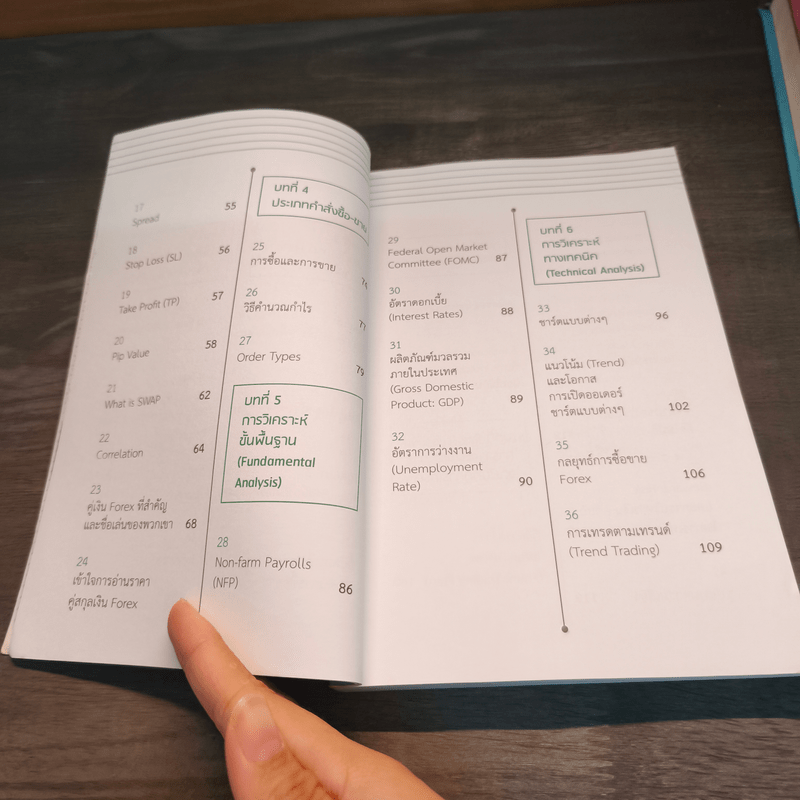 17
Spread 55
18
Stop Loss (SL) 56
19
Take Profit (TP) 57
20
Pip Value 58
21
What is SWAP 62
22
Correlation 64
23
คู่เงิน Forex ที่สำคัญ
และชื่อเล่นของพวกเขา 68
24
เข้าใจการอ่านราคา
คู่สกุลเงิน Forex
บทที่ 4
ประเภทคำสั่งซื้อ-ขาย
25
การซื้อและการขาย
26
วิธีคำนวณกำไร 77
27
Order Types 79
บทที่ 5
การวิเคราะห์
ขั้นพื้นฐาน
(Fundamental
Analysis)
28
Non-farm Payrolls
(NFP) 86
29
Federal Open Market
Committee (FOMC) 87
30
อัตราดอกเบี้ย
(Interest Rates) 88
31
ผลิตภัณฑ์มวลรวม
ภายในประเทศ
(Gross Domestic
Product: GDP) 89
32
อัตราการว่างงาน
(Unemployment
Rate) 90
บทที่ 6
การวิเคราะห์
ทางเทคนิค
(Technical Analysis)
33
ชาร์ตแบบต่างๆ 96
34
แนวโน้ม (Trend)
และโอกาส
การเปิดออเดอร์
ชาร์ตแบบต่างๆ 102
35
กลยุทธ์การซื้อขาย
Forex 106
36
การเทรดตามเทรนด์
(Trend Trading) 109